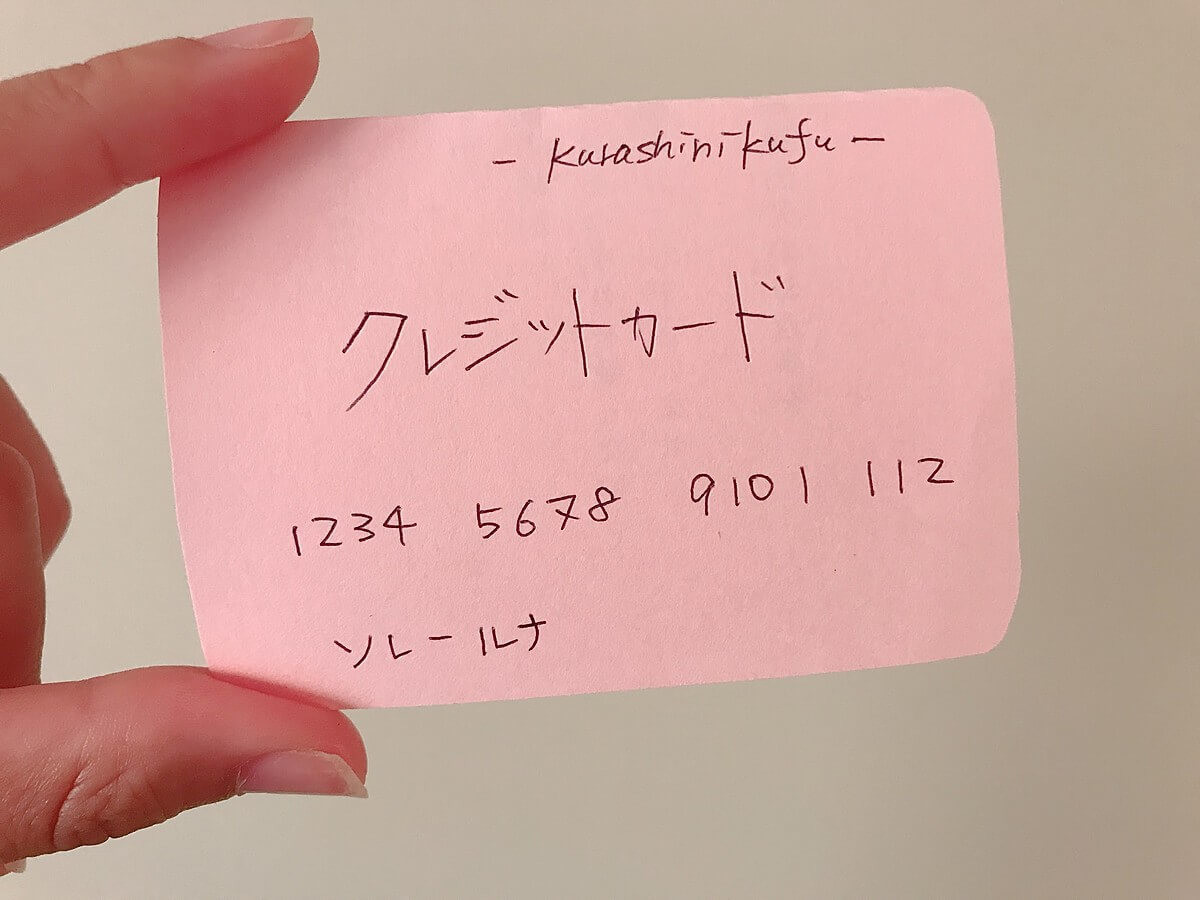 - kurashinikufu -
クレジットカード
1234 5678 9101 112
ソレールナ